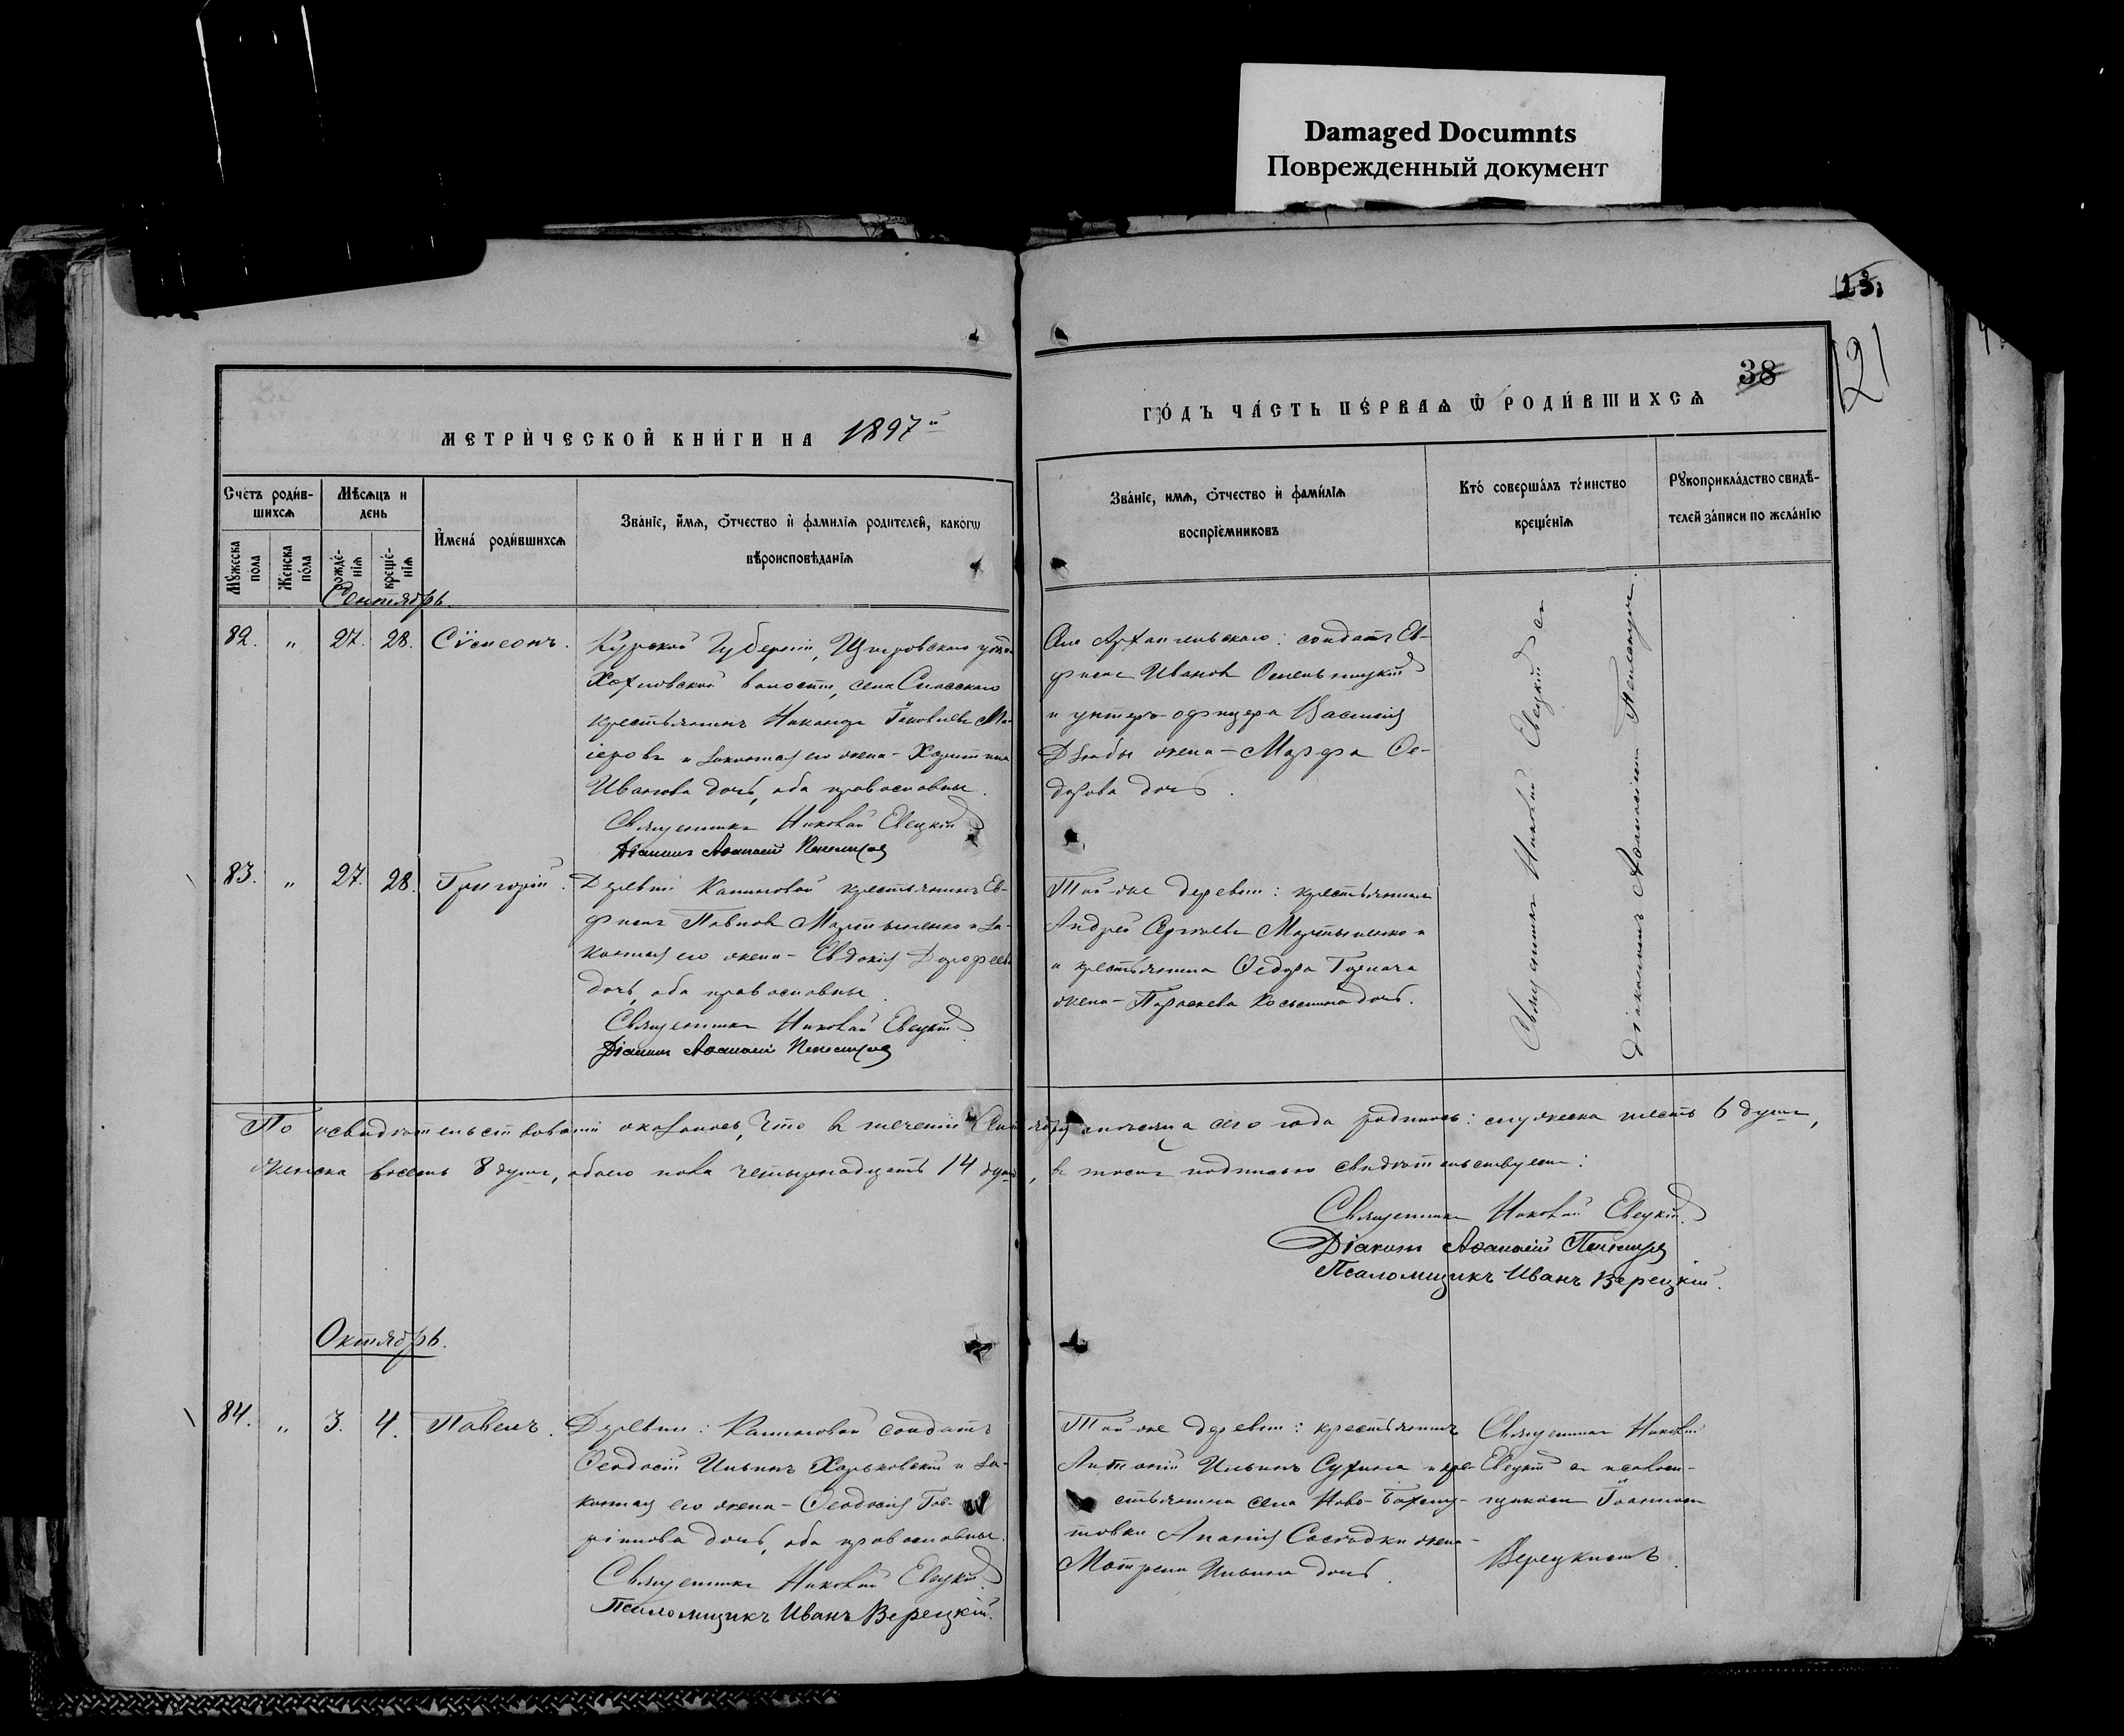 Damaged Documnts
Поврежденный документ
13
121
38
МЕТРИЧЕСКОЙ КНИГИ НА 1897й
ГОДЪ ЧАСТЬ ПЕРВАЯ Ѡ РОДИВШИХСЯ
Счетъ родив-
шихся
Мужеска пола
Женска пола
Мѣсяцъ и
день
рожде-
нія
креще-
нія
Имена родившихся
Званіе, имя, отчество и фамилія родителей, какогѡ
вѣроисповѣданія
Званіе, имя, отчество и фамилія
воспріемниковъ
Кто совершалъ таинство
крещенія
Рукоприкладство свидѣ-
телей записи по желанію
Сентябрь.
82. " 27. 28. Сѵмеонъ.
Курской Губерніи, Щигровскаго уѣзда
Хохловской волости, села Спасскаго
крестьянинъ Никандръ Іаковлевъ
и законная его жена - Харитина
Иванова дочь, оба православные.
Священникъ Николай Евецкій
Діаконъ Аѳанасій
Село Архангельскаго: солдатъ Ев-
фимъ Ивановъ
и унтеръ-офицера Василія
Дзюбы жена - Марѳа Ѳе-
дорова дочь.
Священникъ Николай Евецкій съ
діакономъ Аѳанасіемъ
83. " 27. 28. Григорій.
Деревни Калиновой крестьянинъ Ев-
фимъ Павловъ Мартыненко и за-
конная его жена - Евдокія Дорофеева
дочь, оба православные.
Священникъ Николай Евецкій
Діаконъ Аѳанасій
Той-же деревни: крестьянинъ
Андрей Сергѣевъ Мартыненко
и крестьянина Ѳедора
жена - Параскева Косьмина дочь.
По освидѣтельствованіи оказалось, что въ теченіи Сентября мѣсяца сего года родилось: мужеска шесть 6 душъ,
женска восемь 8 душъ, обоего пола четырнадцать 14 душъ, въ томъ подписью свидѣтельствуемъ:
Священникъ Николай Евецкій
Діаконъ Аѳанасій
Псаломщикъ Иванъ Верецкій.
Октябрь.
84. " 3. 4. Павелъ.
Деревни: Калиновой солдатъ
Ѳеодосій Ильинъ Харьковскій и за-
конная его жена - Ѳеодосія Гав-
ріилова дочь, оба православные.
Священникъ Николай Евецкій
Псаломщикъ Иванъ Верецкій.
Той-же деревни: крестьянинъ
Антоній Ильинъ Сухина и кре-
стьянина села Ново-Бахму-
товки Ананія жена -
Матрена Ильина дочь.
Священникъ Николай
Евецкій съ псалом-
щикомъ Іоанномъ
Верецкимъ.